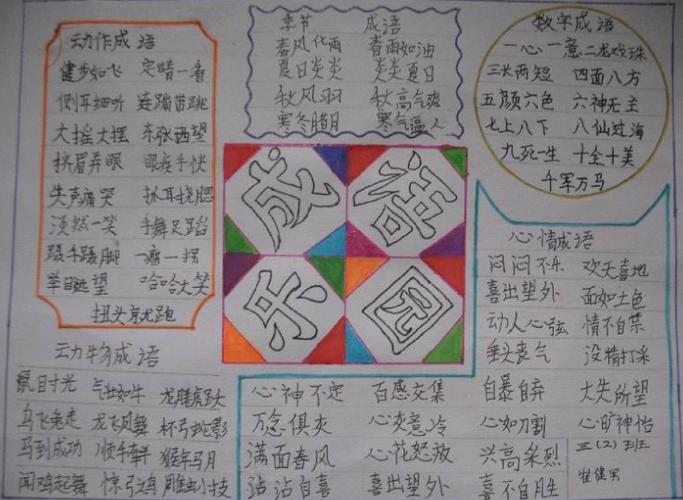 动作成语
健步如飞 定晴一看
侧耳细听 连蹦带跳
大摇大摆 东张西望
挤眉弄眼 眼疾手快
失声痛哭 抓耳挠腮
淡然一笑 手舞足蹈
蹑手蹑脚 一瘸一拐
举目远望 哈哈大笑
扭头就跑
季节 成语
春风化雨 春雨如油
夏日炎炎 炎炎夏日
秋风羽 秋高气爽
寒冬腊月 寒气逼人
数字成语
一心一意 二龙戏珠
三长两短 四面八方
五颜六色 六神无主
七上八下 八仙过海
九死一生 十全十美
千军万马
成语
乐园
心情成语
闷闷不乐 欢天喜地
喜出望外 面如土色
动人心弦 情不自禁
垂头丧气 没精打采
自暴自弃 大失所望
心如刀割 心旷神怡
兴高采烈
喜不自胜
心神不定 百感交集
万念俱灰 心灰意冷
满面春风 心花怒放
沾沾自喜 喜出望外
动物成语
鼠目寸光 气壮如牛 龙腾虎跃
乌飞兔走 龙飞凤舞 杯弓蛇影
马到成功 顺手牵羊 猴年马月
闻鸡起舞 惊弓之鸟 雕虫小技
三(2)班